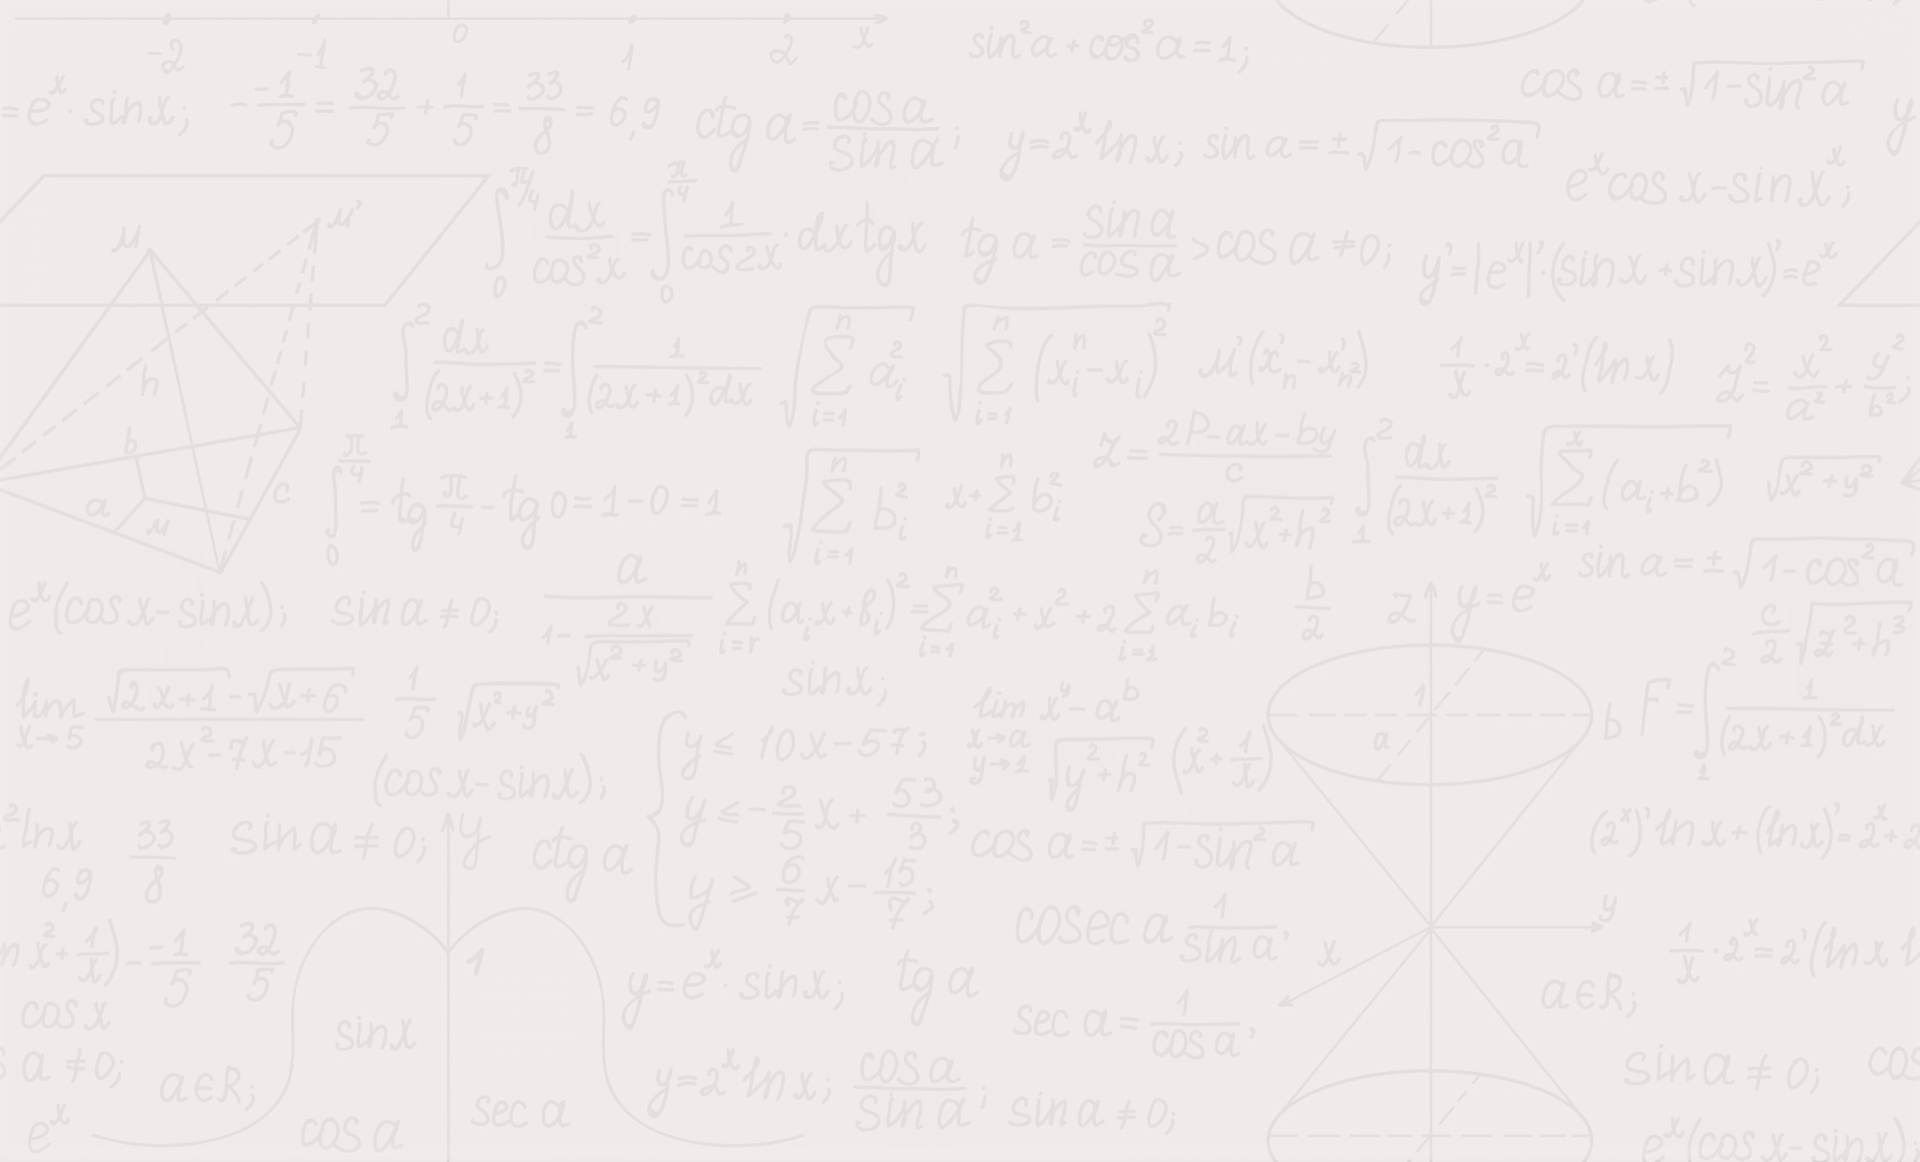 -2 -1 0 1 2 x
sin²a + cos²a = 1;
cos a = ± √(1-sin²a)
= eˣ · sinx; - -1/5 = 32/5 + 1/5 = 33/8 = 6,9
ctg a = cos a / sin a ;
y = 2ˣ ln x; sin a = ± √(1-cos²a)
y
eˣ cos x - sin xˣ;
μ μ'
∫₀^(π/4) dx/cos²x = ∫₀^(π/4) 1/cos2x · dx tg x
tg a = sin a / cos a > cos a ≠ 0;
y' = |eˣ|' · (sinx + sinx)' = eˣ
h b a μ c
∫₁² dx/(2x+1)² = ∫₁² 1/(2x+1)²dx
√(∑ⁿᵢ₌₁ aᵢ²)
√(∑ⁿᵢ₌₁ (xᵢⁿ - xᵢ)²)
1/x · 2ˣ = 2'(ln x)
z² = x²/a² + y²/b²;
∫₀^(π/4) = tg π/4 - tg 0 = 1 - 0 = 1
√(∑ⁿᵢ₌₁ bᵢ²)
x + ∑ⁿᵢ₌₁ bᵢ²
z = (2P - ax - by)/c
S = a/2 √(x²+h²)
∫₁² dx/(2x+1)²
√(∑ˣᵢ₌₁ (aᵢ + b²))
√(x² + y²)
sin a = ± √(1-cos²a)
eˣ(cos x - sinx); sin a ≠ 0;
a/(1 - 2x/√(x² + y²))
∑ⁿᵢ₌ᵣ (aᵢx + bᵢ)² = ∑ⁿᵢ₌₁ aᵢ² + x² + 2∑ⁿᵢ₌₁ aᵢbᵢ
b/2
z y = eˣ
c/2 √(z² + h³)
sinx;
lim x→5 (√(2x+1) - √(x+6))/(2x² - 7x - 15)
1/5 √(x²+y²)
{ y ≤ 10x - 57;
y ≤ -2/5 x + 53/3;
y ≥ 6/7 x - 15/7;
lim x→a y→1 xʸ - aᵇ
√(y² + h²) (x² + 1/x)
1 a b
F = ∫₁² 1/(2x+1)²dx
(cos x - sinx);
² lnx 33/8 sin a ≠ 0; y ctg a
6,9
cos a = ± √(1-sin²a)
(2ˣ)' ln x + (ln x)' = 2ˣ + 2
cosec a 1/sin a,
x y
1/x · 2ˣ = 2'(ln x
x² + 1/x) - -1/5 32/5
1
y = eˣ · sinx; tg a
a∈R;
cos x
sinx
sec a = 1/cos a,
a ≠ 0; a∈R;
y = 2ˣ ln x; cos a / sin a ; sin a ≠ 0;
sin a ≠ 0; cos
eˣ
cos a sec a
eˣ(cos x - sinx);